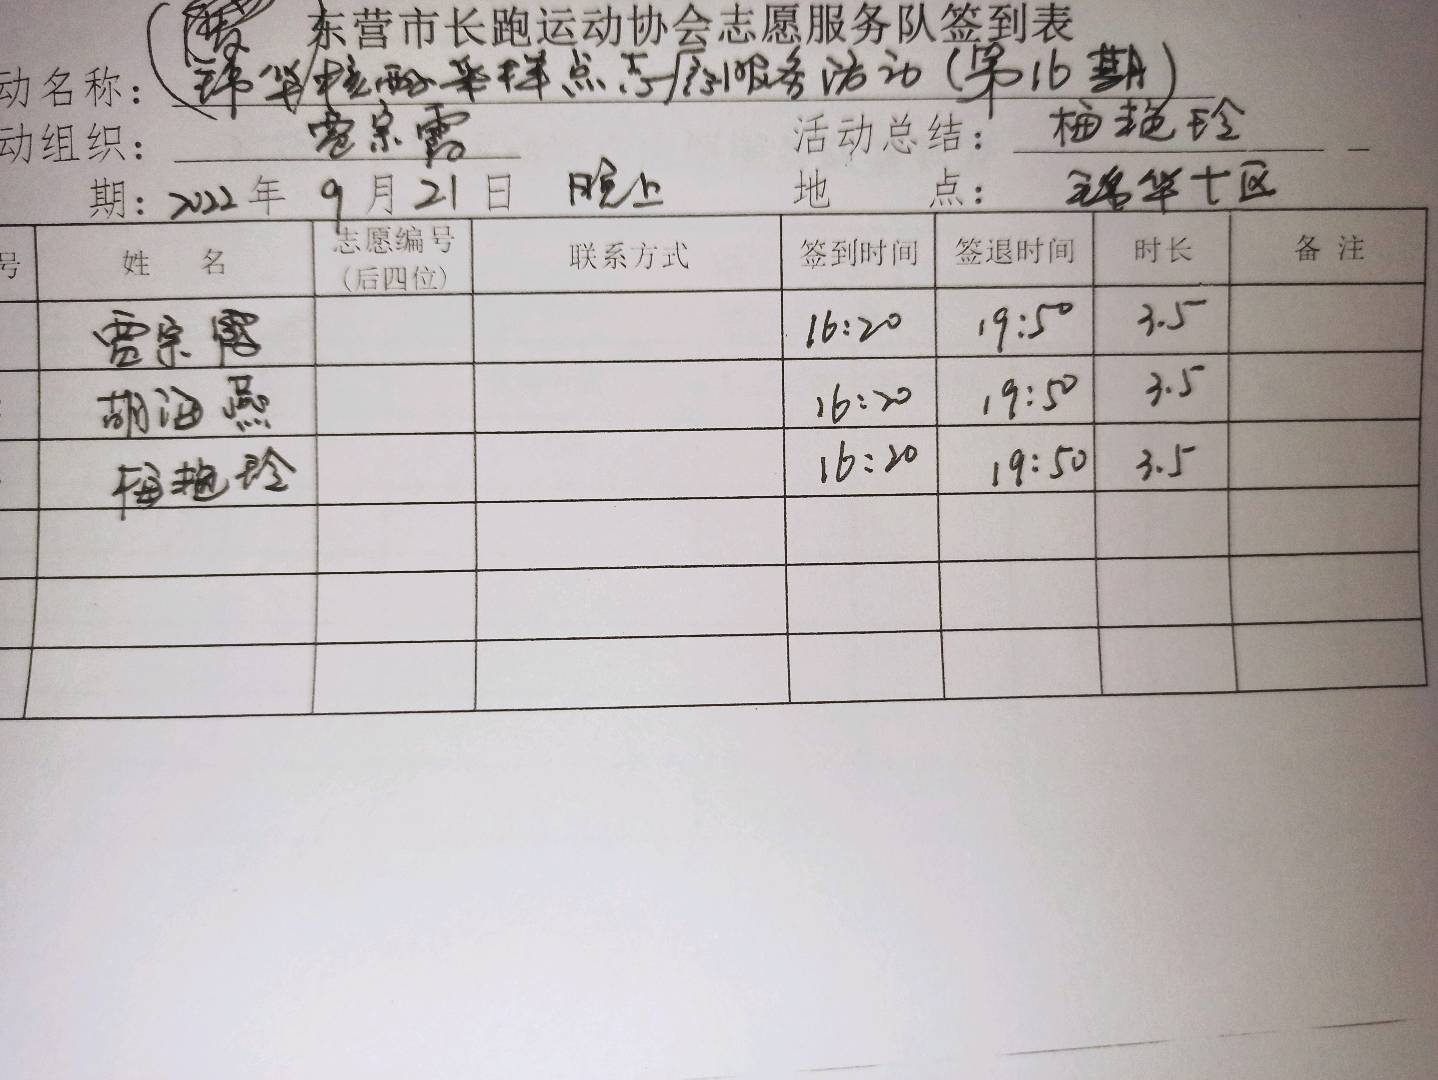 东营市长跑运动协会志愿服务队签到表
动名称： 华核酸采样点志愿服务活动（第16期）
动组织： 宗霞 活动总结： 梅艳玲
期：2022年 9月21日 晚上 地 点： 瑞华十区
号 姓 名 志愿编号 联系方式 签到时间 签退时间 时长 备 注
(后四位)
贾宗霞 16:20 19:50 3.5
胡海燕 16:20 19:50 3.5
梅艳玲 16:20 19:50 3.5